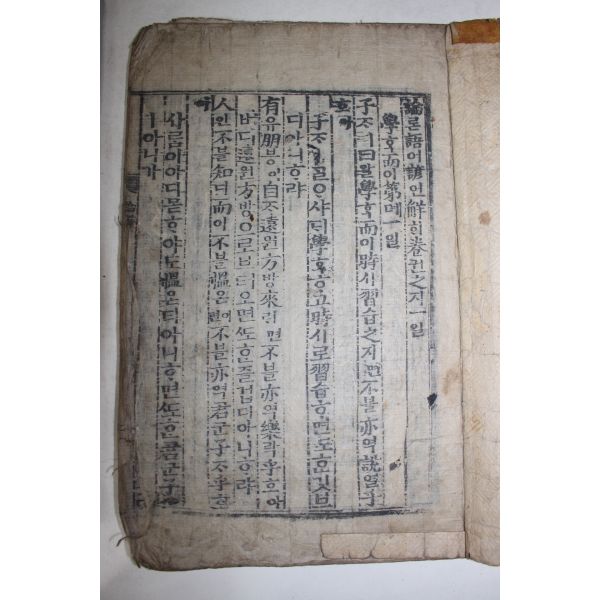 論론語어諺언解ᄒᆡ卷권之지一일
學ᄒᆞᆨ而이第뎨一일
子ᄌᆞㅣ曰왈學ᄒᆞᆨ而이時시習습之지面不블亦역說열乎
호아
子ᄌᆞㅣᄀᆞᆯᄋᆞ샤ᄃᆡ學ᄒᆞᆨᄒᆞ고時시로習습ᄒᆞ면ᄯᅩᄒᆞᆫ깃브
디아니ᄒᆞ랴
有유朋븡이自ᄌᆞ遠원方방來ᄅᆡ면不블亦역樂락乎호애
버디遠원方방으로브터오면ᄯᅩᄒᆞᆫ즐겁디아니ᄒᆞ랴
人인不블知디而이不블慍온이면不블亦역君군子ᄌᆞ乎호
아
사ᄅᆞᆷ이아디몯ᄒᆞ야도慍온티아니ᄒᆞ면ᄯᅩᄒᆞᆫ君군子ᄌᆞ
ㅣ아니가